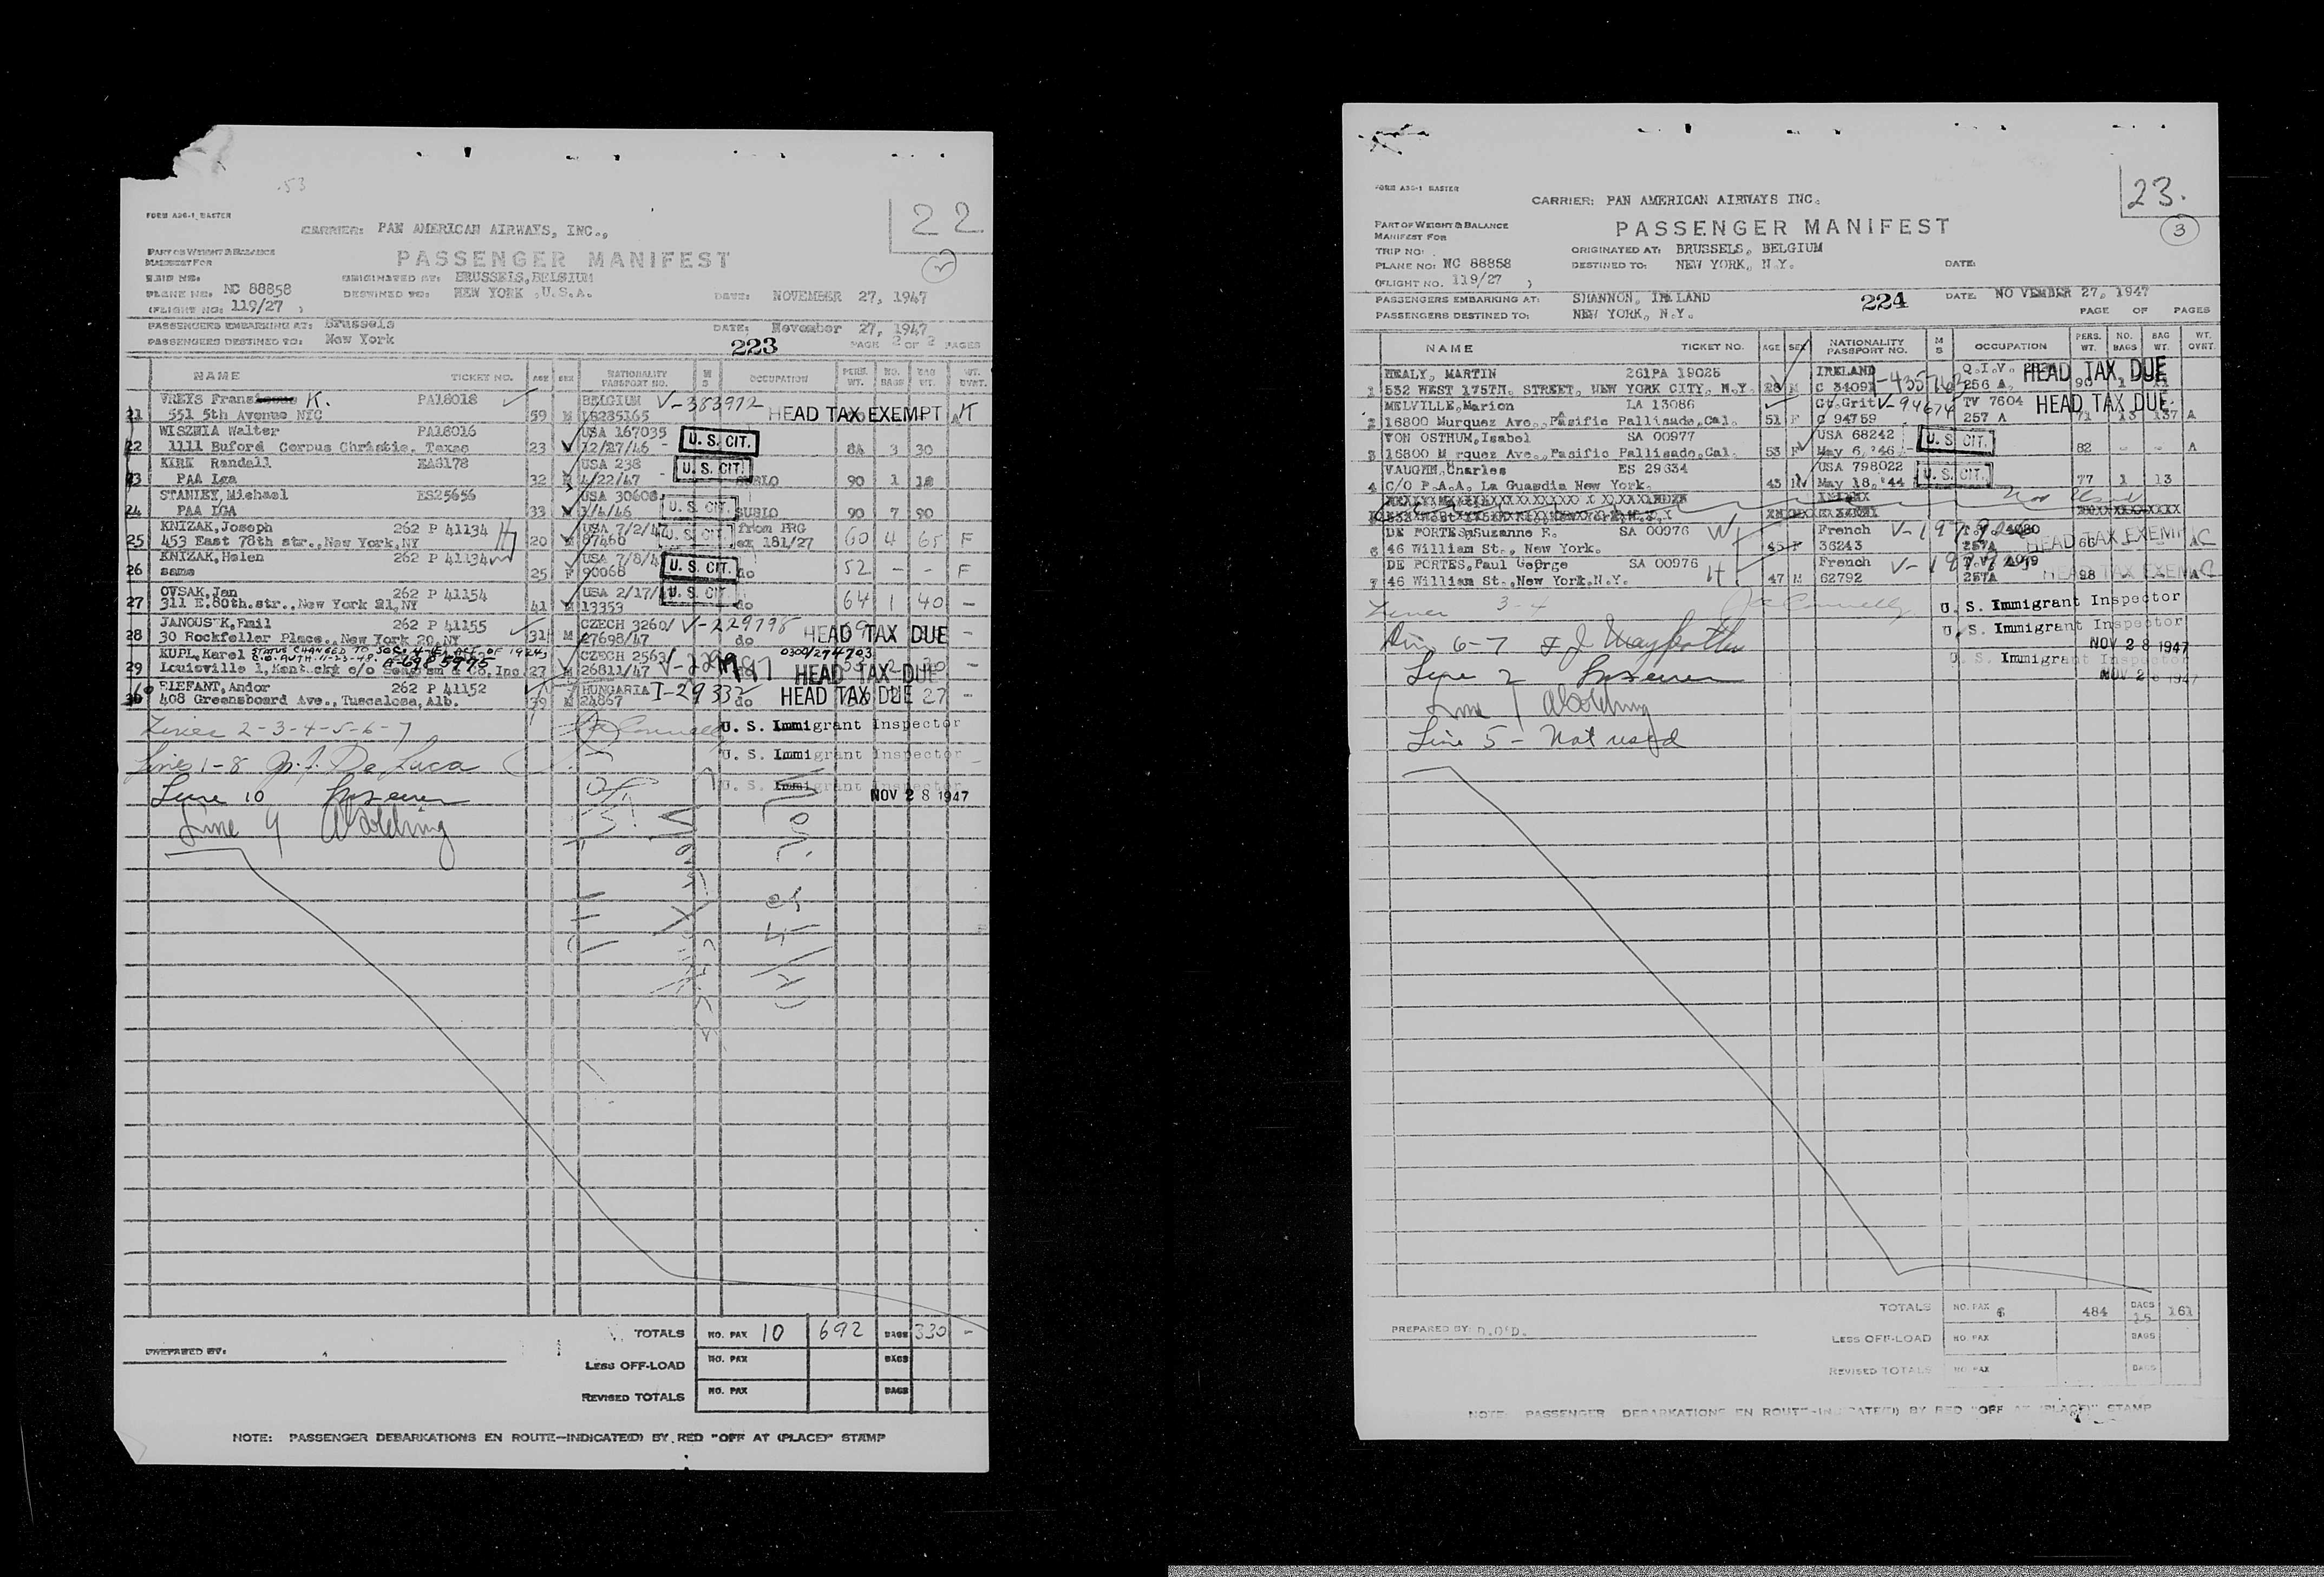 53
22
FORM A26-1 MASTER
CARRIER: PAN AMERICAN AIRWAYS, INC.,
PART OF WEIGHT & BALANCE
MANIFEST FOR
PASSENGER MANIFEST
2
TRIP NO:
ORIGINATED AT: BRUSSELS, BELGIUM
PLANE NO: NC 88858
DESTINED TO: NEW YORK ,U.S.A.
DATE: NOVEMBER 27, 1947
(FLIGHT NO: 119/27 )
PASSENGERS EMBARKING AT: Brussels
DATE: November 27, 1947
PASSENGERS DESTINED TO: New York
223
PAGE 2 OF 2 PAGES
NAME TICKET NO. AGE SEX NATIONALITY PASSPORT NO. M S OCCUPATION PERS. WT. NO. BAGS BAG WT. WT. OVNT.
VREYS Frans K. PA18018 BELGIUM V-383972
21 551 5th Avenue NYC 59 M HEAD TAX EXEMPT K
WISZNIA Walter PA18016 USA 167035 U. S. CIT.
22 1111 Buford Corpus Christie. Texas 23 12/27/46 - 84 3 30
KIRK Randall EA8178 USA 238 U. S. CIT.
23 PAA Lga 32 M 4/22/47 90 1 18
STANLEY, Michael ES25656 USA 30608 U. S. CIT.
24 PAA LGA 33 1/4/46 SUBLO 90 7 90
KNIZAK, Joseph 262 P 41134 H USA 7/2/47 U. S. CIT. from PRG
25 453 East 78th str., New York, NY 20 87460 ex 181/27 60 4 65 F
KNIZAK, Helen 262 P 41134 W USA 7/8/4 U. S. CIT.
26 same 25 F 90068 do 52 - - F
OVSAK, Jan 262 P 41154 USA 2/17/ U. S. CIT.
27 311 E.80th.str., New York 21, NY 41 M 13353 do 64 1 40 -
JANOUSEK, Emil 262 P 41155 CZECH 3260/ V-229798
28 30 Rockfeller Place., New York 20, NY 31 M 27698/47 do HEAD TAX DUE -
KUPL, Karel STATUS CHANGED TO SEC. 4-(E) ACT OF 1924, CZECH 2563/ 0300/274703
C.O. AUTH. 11-23-48. A-6985975
29 Louisville 1, Kent.cky c/o Inc 27 M 26811/47 HEAD TAX DUE -
ELEFANT, Andor 262 P 41152 HUNGARIA I-29332
30 408 Greensboard Ave., Tuscalosa, Alb. 39 M 24867 do HEAD TAX DUE 27 -
Lines 2-3-4-5-6-7 U. S. Immigrant Inspector
Lines 1-8 De Luca U. S. Immigrant Inspector
U. S. Immigrant Inspector
Line 10 NOV 28 1947
Line 9
TOTALS NO. PAX 10 692 BAGS 330 -
PREPARED BY:
LESS OFF-LOAD NO. PAX BAGS
REVISED TOTALS NO. PAX BAGS
NOTE: PASSENGER DEBARKATIONS EN ROUTE—INDICATE(D) BY RED "OFF AT (PLACE)" STAMP
23.
FORM A26-1 MASTER
CARRIER: PAN AMERICAN AIRWAYS INC.
PART OF WEIGHT & BALANCE
MANIFEST FOR
PASSENGER MANIFEST
3
TRIP NO:
ORIGINATED AT: BRUSSELS, BELGIUM
PLANE NO: NC 88858
DESTINED TO: NEW YORK, N.Y.
DATE:
(FLIGHT NO. 119/27 )
PASSENGERS EMBARKING AT: SHANNON, IRELAND
224
DATE. NO VEMBER 27, 1947
PASSENGERS DESTINED TO: NEW YORK, N.Y.
PAGE OF PAGES
NAME TICKET NO. AGE SEX NATIONALITY PASSPORT NO. M S OCCUPATION PERS. WT. NO. BAGS BAG WT. WT. OVNT.
HEALY, MARTIN 261PA 19025 IRELAND Q.I.V. HEAD TAX DUE
1 532 WEST 175TH. STREET, NEW YORK CITY, N.Y. 28 M 256 A,
MELVILLE, Marion LA 13086 Gt.Brit V-94674 TV 7604 HEAD TAX DUE
2 16800 Murquez Ave., Pasific Pallisade, Cal. 51 F C 94759 257 A 71 13 137 A
VON OSTHUM, Isabel SA 00977 USA 68242 U. S. CIT.
3 16800 M rquez Ave., Pasific Pallisade, Cal. 53 F May 6, '46 82 - - A
VAUGHN, Charles ES 29634 USA 798022 U. S. CIT.
4 C/O P.A.A. La Guardia New York. 43 M May 18, '44 77 1 13
Not Used
DE PORTES, Suzanne F. SA 00976 W French HEAD TAX EXEMPT
6 46 William St., New York. 45 F 36243 257A 66 - - AC
DE PORTES, Paul George SA 00976 H French HEAD TAX EXEMPT
7 46 William St., New York.N.Y. 47 M 62792 257A 98
Lines 3-4 U. S. Immigrant Inspector
U. S. Immigrant Inspector
Lines 6-7 NOV 28 1947
U. S. Immigrant Inspector
Line 2 NOV 28 1947
Line 1
Line 5 - Not used
TOTALS NO. PAX 6 484 BAGS 15 161
PREPARED BY: D.O'D.
LESS OFF-LOAD NO. PAX BAGS
REVISED TOTALS NO. PAX BAGS
NOTE: PASSENGER DEBARKATIONS EN ROUTE—INDICATE(D) BY RED "OFF AT (PLACE)" STAMP